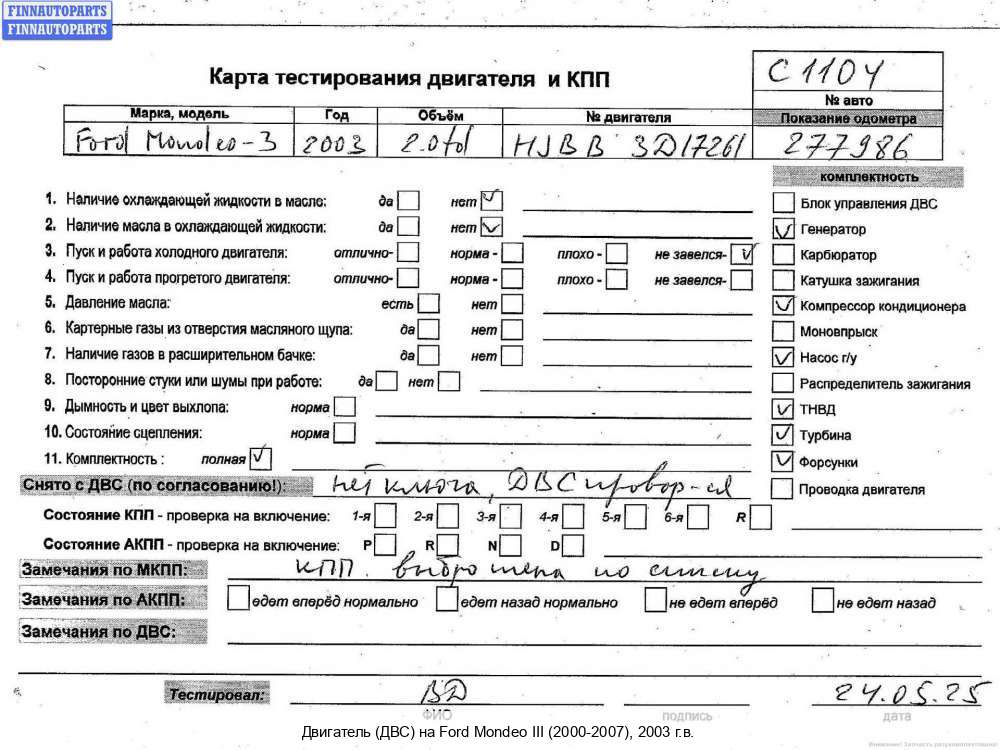 FINNAUTOPARTS
FINNAUTOPARTS
Карта тестирования двигателя и КПП
С 1104
№ авто
Марка, модель Год Объём № двигателя Показание одометра
Ford Mondeo-3 2003 2.0td HJBB 3D17261 277986
комплектность
1. Наличие охлаждающей жидкости в масле: да нет
Блок управления ДВС
2. Наличие масла в охлаждающей жидкости: да нет
Генератор
3. Пуск и работа холодного двигателя: отлично- норма - плохо - не завелся-
Карбюратор
4. Пуск и работа прогретого двигателя: отлично- норма - плохо - не завелся-
Катушка зажигания
5. Давление масла: есть нет
Компрессор кондиционера
6. Картерные газы из отверстия масляного щупа: да нет
Моновпрыск
7. Наличие газов в расширительном бачке: да нет
Насос г/у
8. Посторонние стуки или шумы при работе: да нет
Распределитель зажигания
9. Дымность и цвет выхлопа: норма
ТНВД
10. Состояние сцепления: норма
Турбина
11. Комплектность : полная
Форсунки
Снято с ДВС (по согласованию!): нет ключа, ДВС провор-ся
Проводка двигателя
Состояние КПП - проверка на включение: 1-я 2-я 3-я 4-я 5-я 6-я R
Состояние АКПП - проверка на включение: P R N D
Замечания по МКПП: КПП выброшена по списку
Замечания по АКПП: едет вперёд нормально едет назад нормально не едет вперёд не едет назад
Замечания по ДВС:
Тестировал: ВД 24.05.25
ФИО подпись дата
Двигатель (ДВС) на Ford Mondeo III (2000-2007), 2003 г.в.